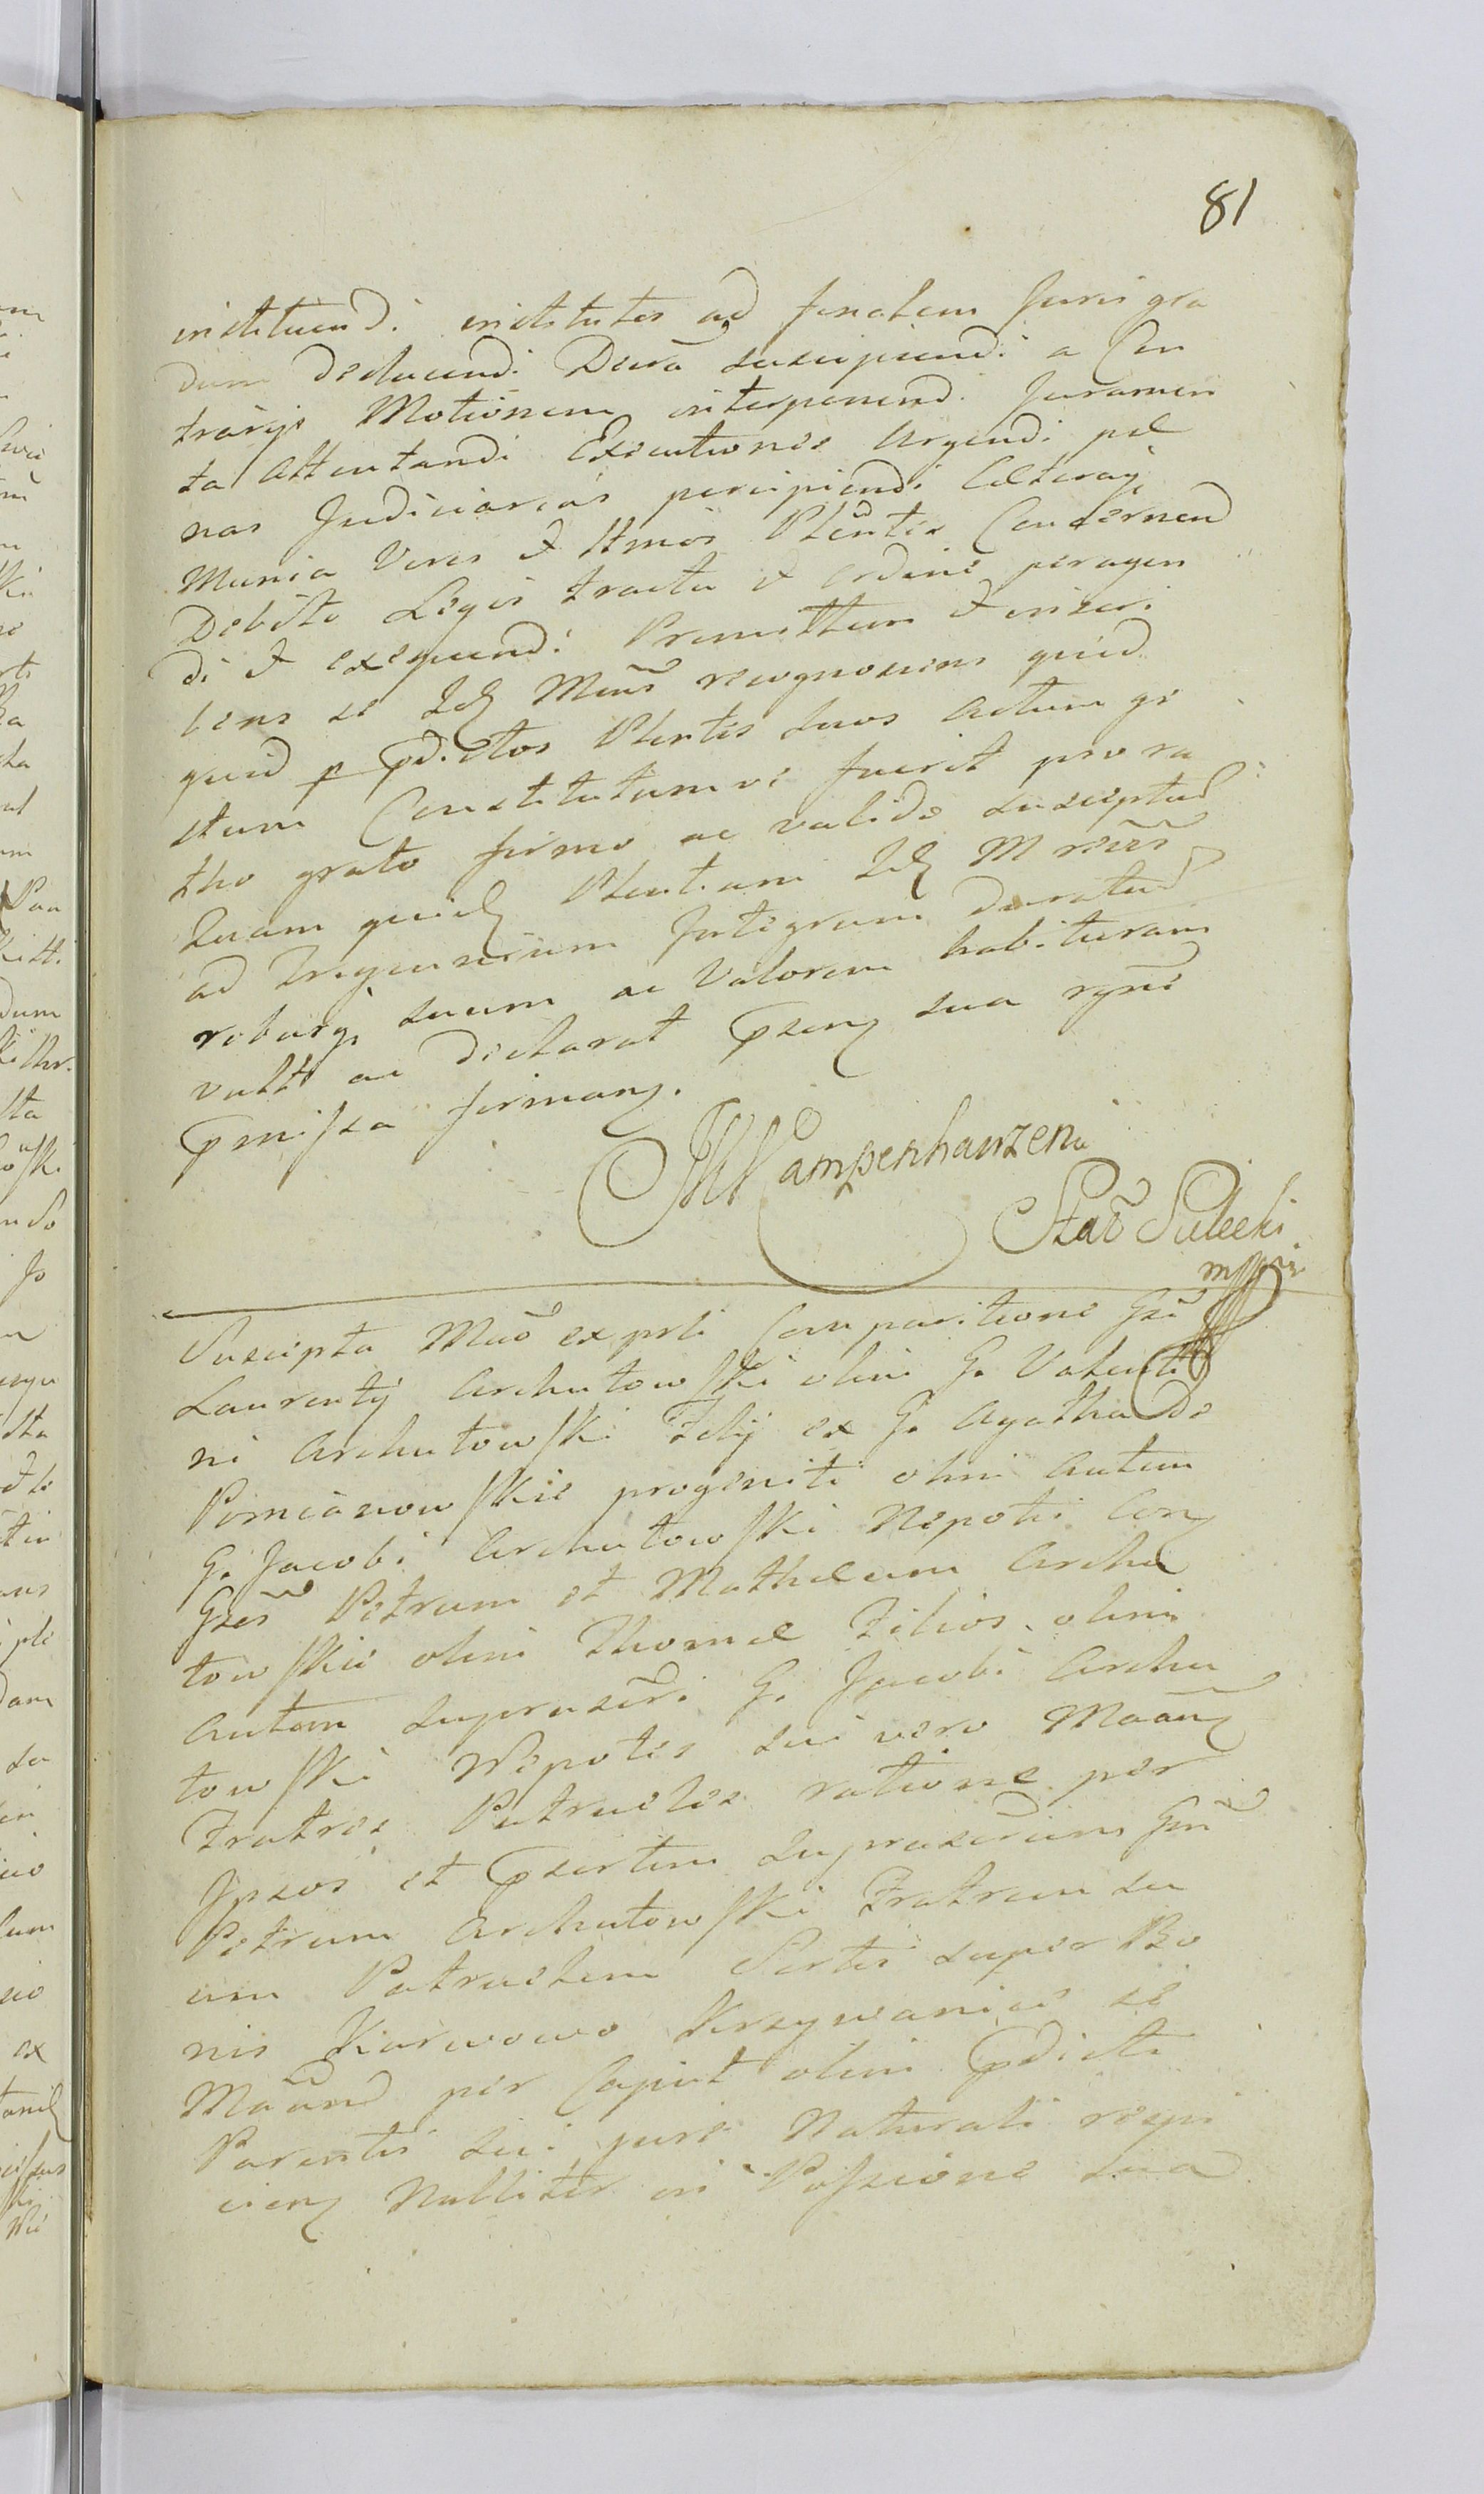 81
instituendi institutas ad finalem Juris gra
dum deducendi Decra suscipiendi a Con
trarijs Motionem interponend. Juramen
ta attentandi Executiones Urgendi pæ
nas Judiciarias percipiendi Cæteraq
Munia Veres et ltmos Plentes Concernend
Debito Legis tractu et ordine peragen
di et exequendi Promittem et inseri
bens se Idq Mcus recognoscens quid
quid p pdictos Plentes suos actum ge
stum Constitutumve fuerit pro ra
tho grato firmo ac valido susceptud
Quam quidq Plentiam Idq M recus
ad Trigennium Integrum duratud
roburq suum ac Valorem habituram
vult ac declarat psenq sua rgne
pmissa firmanq.
JMCampenhauzen
Star Sulecki
mppria
Suscepta Mcao ex prti Comparitione Gsi
Laurentij Archutowski olim G. Valenti
ni Archutowski Filij ex G. Agatha de
Pomianowskie progeniti olim autem
G. Jacobi Archutowski Nepotis Conq
Gsos Petrum et Mathæum Archu
towskie olim Thomæ Filios olim
autem suprascri G. Jacobi Archu
towski Nepotes sui vero Maanq
Fratres Patrueles ratione per
Ipsos et psertim suprascrum Gsn
Petrum Archutowski Fratrem su
um Patruelem Sortis super Bo
nis Karwowo Krzywanice se
Maand per Caput olim pdicti
Parentis sui jure Naturali respi
cienq Nulliter in Possione sua